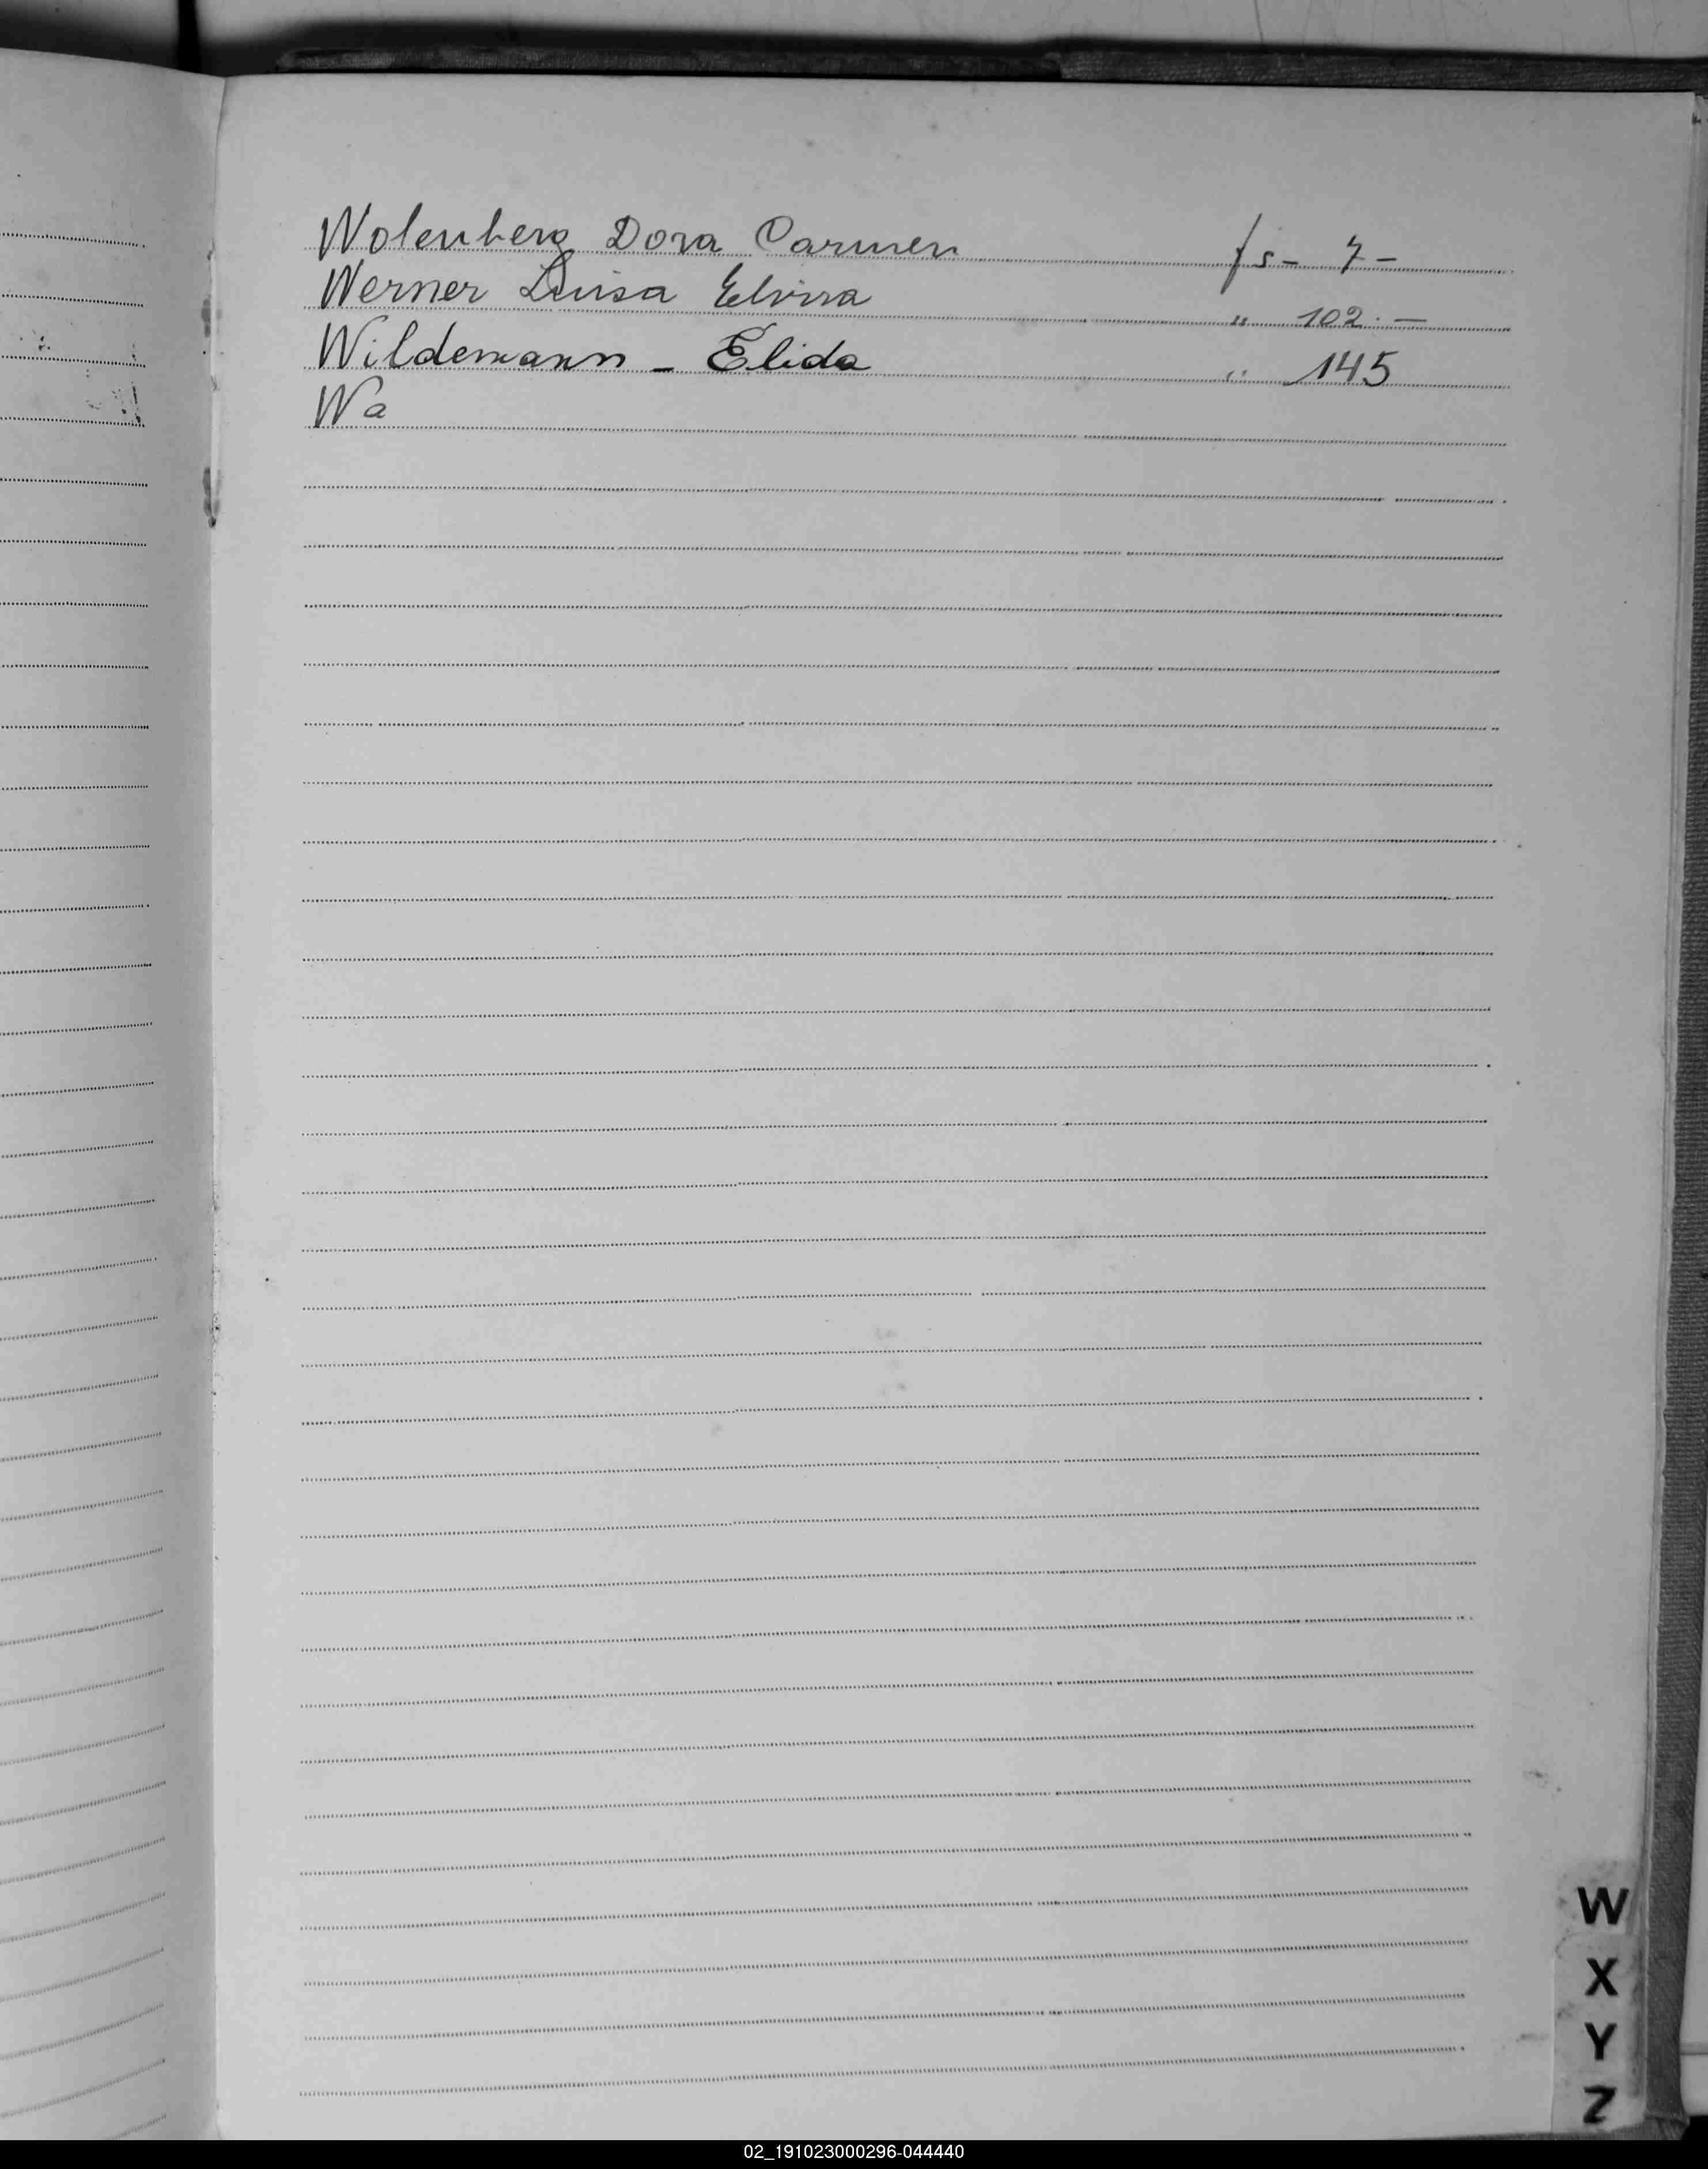 Wolenberg Dora Carmen fs- 7-
Werner Luisa Elvira " 102.-
Wildemann - Elida " 145
Wa
W
X
Y
Z
02_191023000296-044440